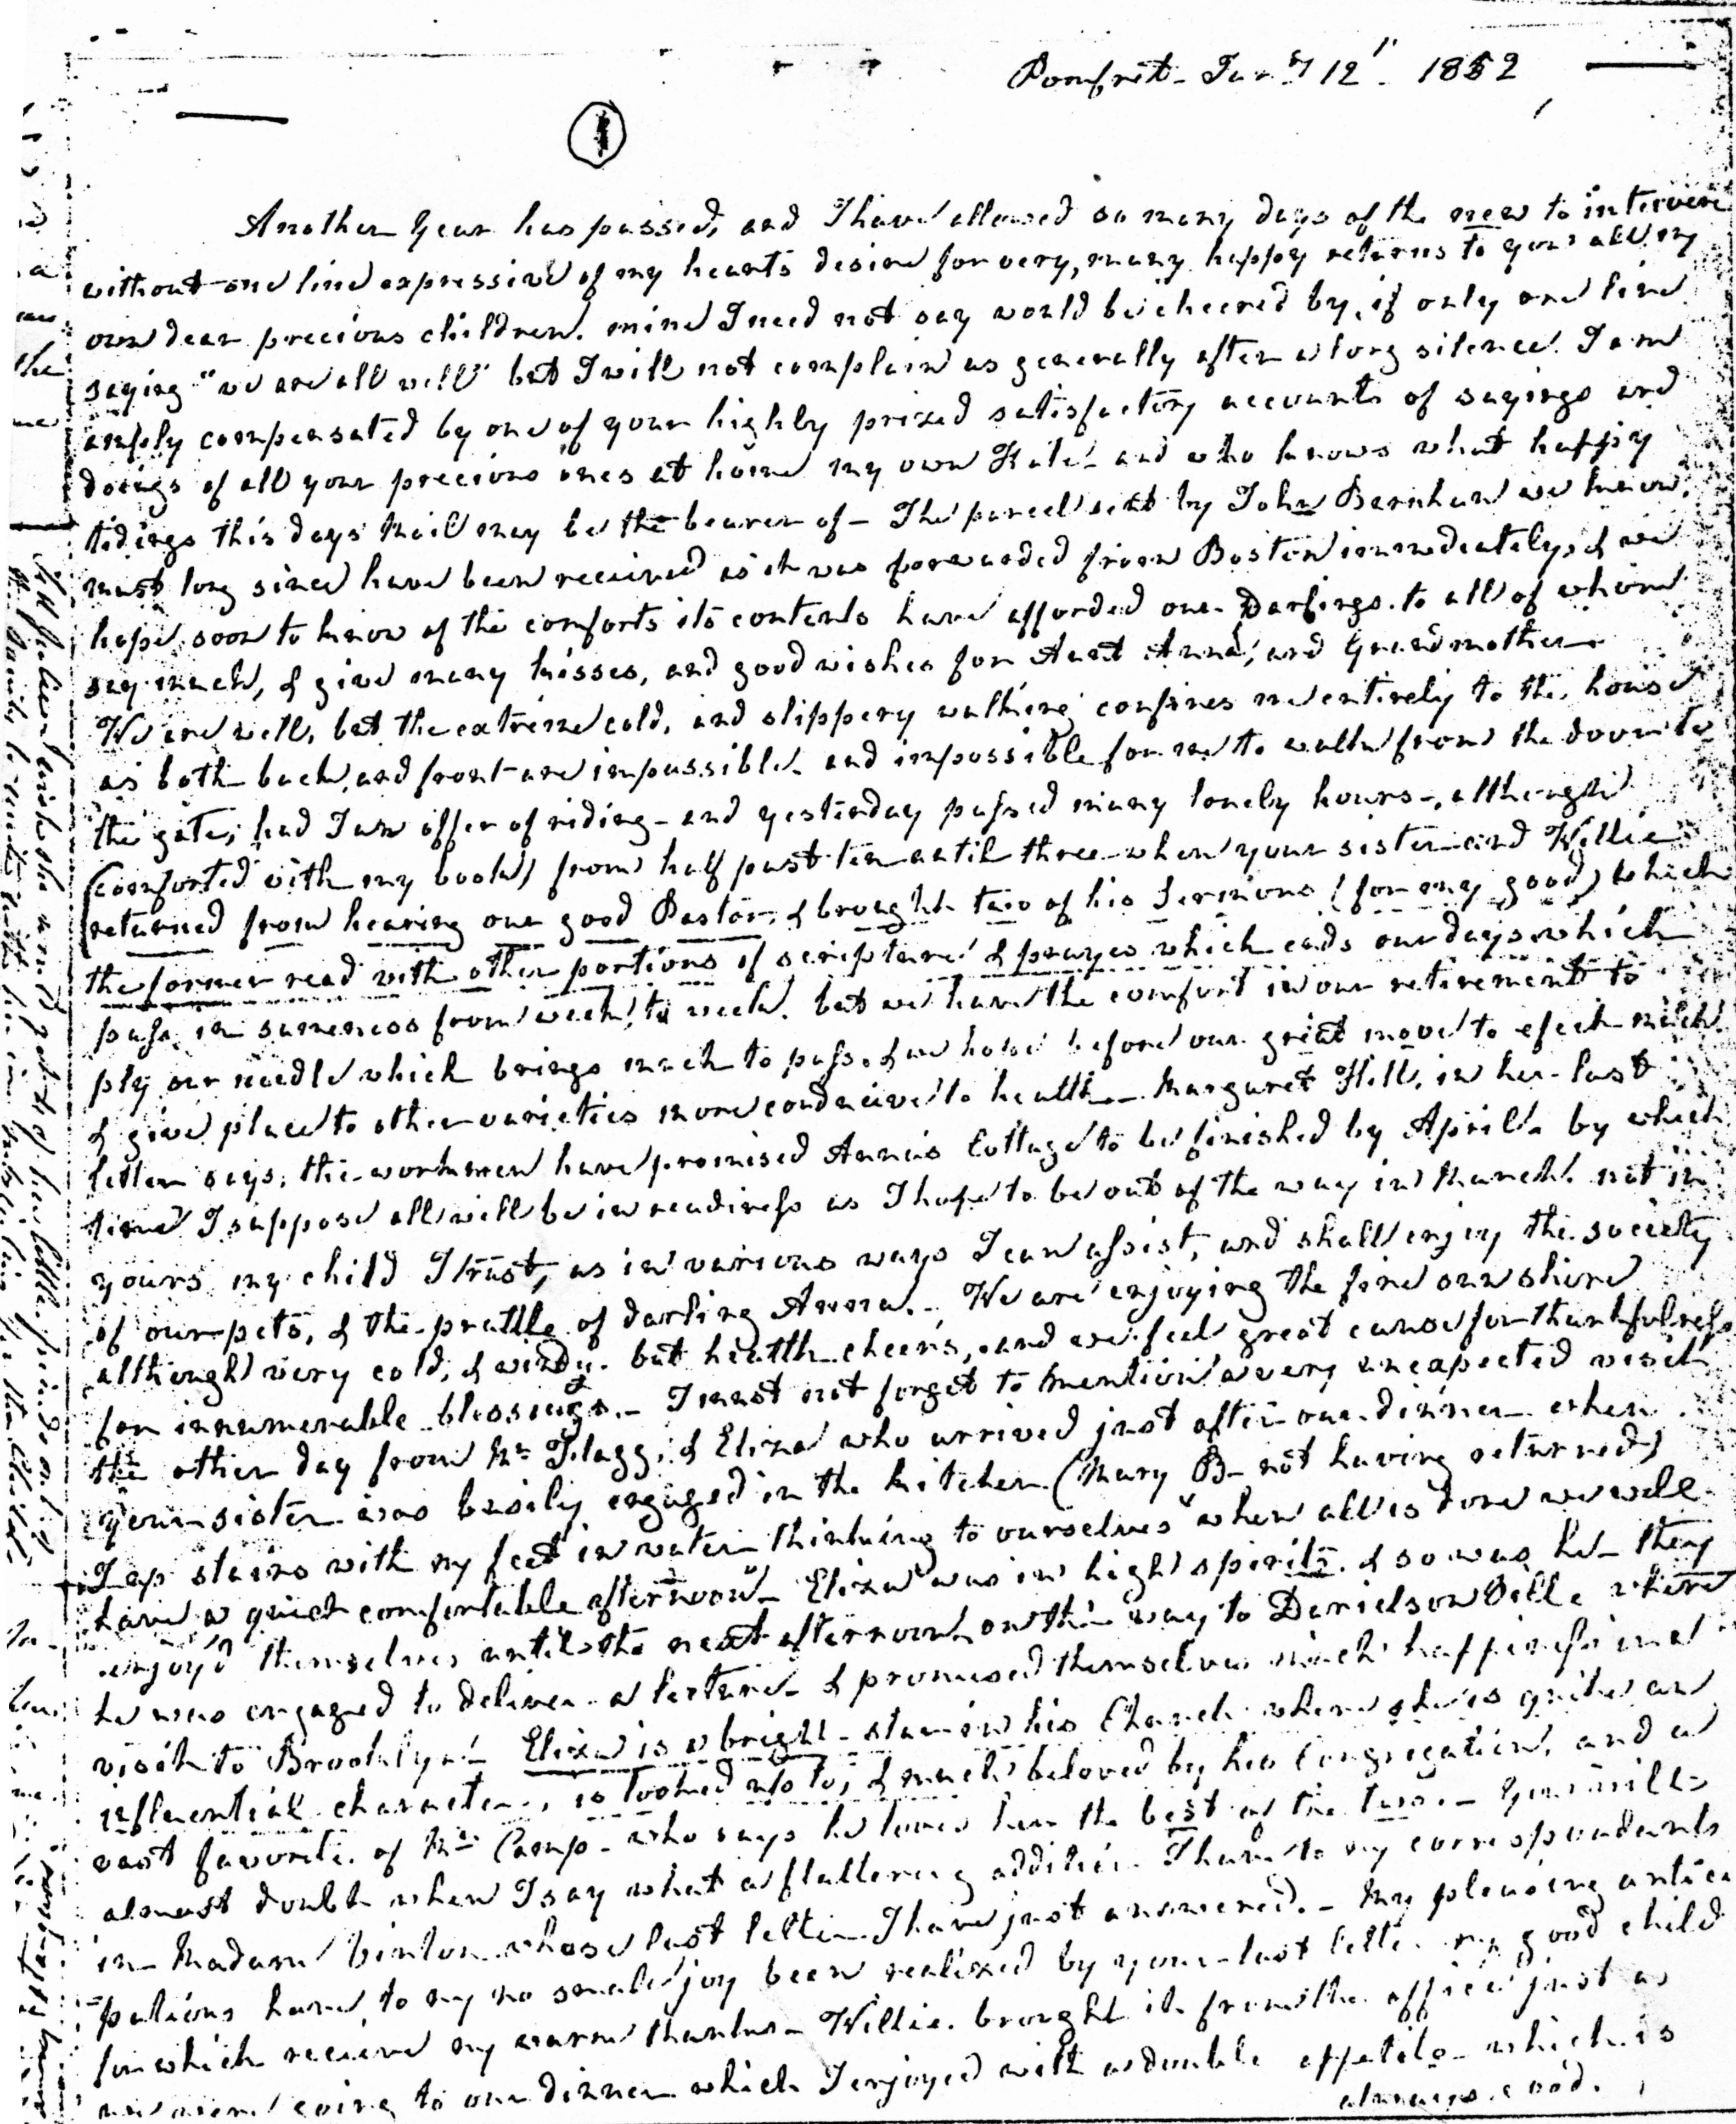 Pomfret - Jany 12" 1852
1
Another Year has passed, and I have allowed so many days of the new to intervene
without one line expressive of my hearts desire for very, many happy returns to you all my
own dear precious children. mine I need not say would be cheered by, if only one line
saying "we are all well" but I will not complain as generally after a long silence I am
amply compensated by one of your highly prized satisfactory accounts of sayings and
doings of all your precious ones at home my own Kate - and who knows what happy
tidings this days Mail may be the bearer of - The parcel sent by John Barnham we know,
must long since have been received as it was forwarded from Boston immediately, & we
hope soon to know of the comforts its contents have afforded our Darlings. to all of whom
say much, & give many kisses, and good wishes for Aunt Anna, and Grandmother
We are well, but the extreme cold, and slippery walking confines me entirely to the house
as both back, and front are impassible - and impossible for me to walk from the door to
the gate, had I an offer of riding - and yesterday passed many lonely hours -, although
(comforted with my book) from half past ten until three - when your sister and Willie
returned from hearing our good Pastor, & brought two of his Sermons (for my good) which
the former read with other portions of scripture & prayer which ends our days which
pass in sameness from week, to week. but we have the comfort in our retirement to
ply our needle which brings much to pass, & we hope before our great move to efect much
& give place to other varieties more conducive to health - Margaret Hill, in her last
letter says, the workmen have promised Anna's Cottage to be finished by April - by which
time I suppose all will be in readiness as I hope to be out of the way in March. not in
yours my child I trust, as in various ways I can assist, and shall enjoy the society
of our pets, & the prattle of darling Anna. - We are enjoying the fine sun shine
although very cold, & windy. but health cheers, and we feel great cause for thankfulness
for innumerable blessings. - I must not forget to mention a very unexpected visit
the other day from Mr Flagg, & Eliza who arrived just after our dinner when
your sister was busily engaged in the kitchen (Mary B - not having returned)
I up stairs with my feet in water thinking to ourselves "when all is done we will
have a quiet comfortable afternoon" - Eliza was in high spirits & so was he - they
enjoy'd themselves until the next afternoon, on their way to Danielson Ville where
he was engaged to deliver a lecture - & promised themselves much happiness in a
visit to Brooklyn - Eliza is a bright star in his Church where she is quite an
influential character, is looked up to, & much beloved by his Congregation, and a
vast favorite of Mr Camp - who says he loves her the best of the two. - You will
almost doubt when I say what a flattering addition I have to my correspondents
in Madam Vinton whose last letter I have just answered. - My pleasing antici
pations have to my no small joy been realized by your last letter my good child
for which receive my warm thanks - Willie brought it from the office just as
we were going to our dinner which I enjoyed with a double appetite - which is
always good.